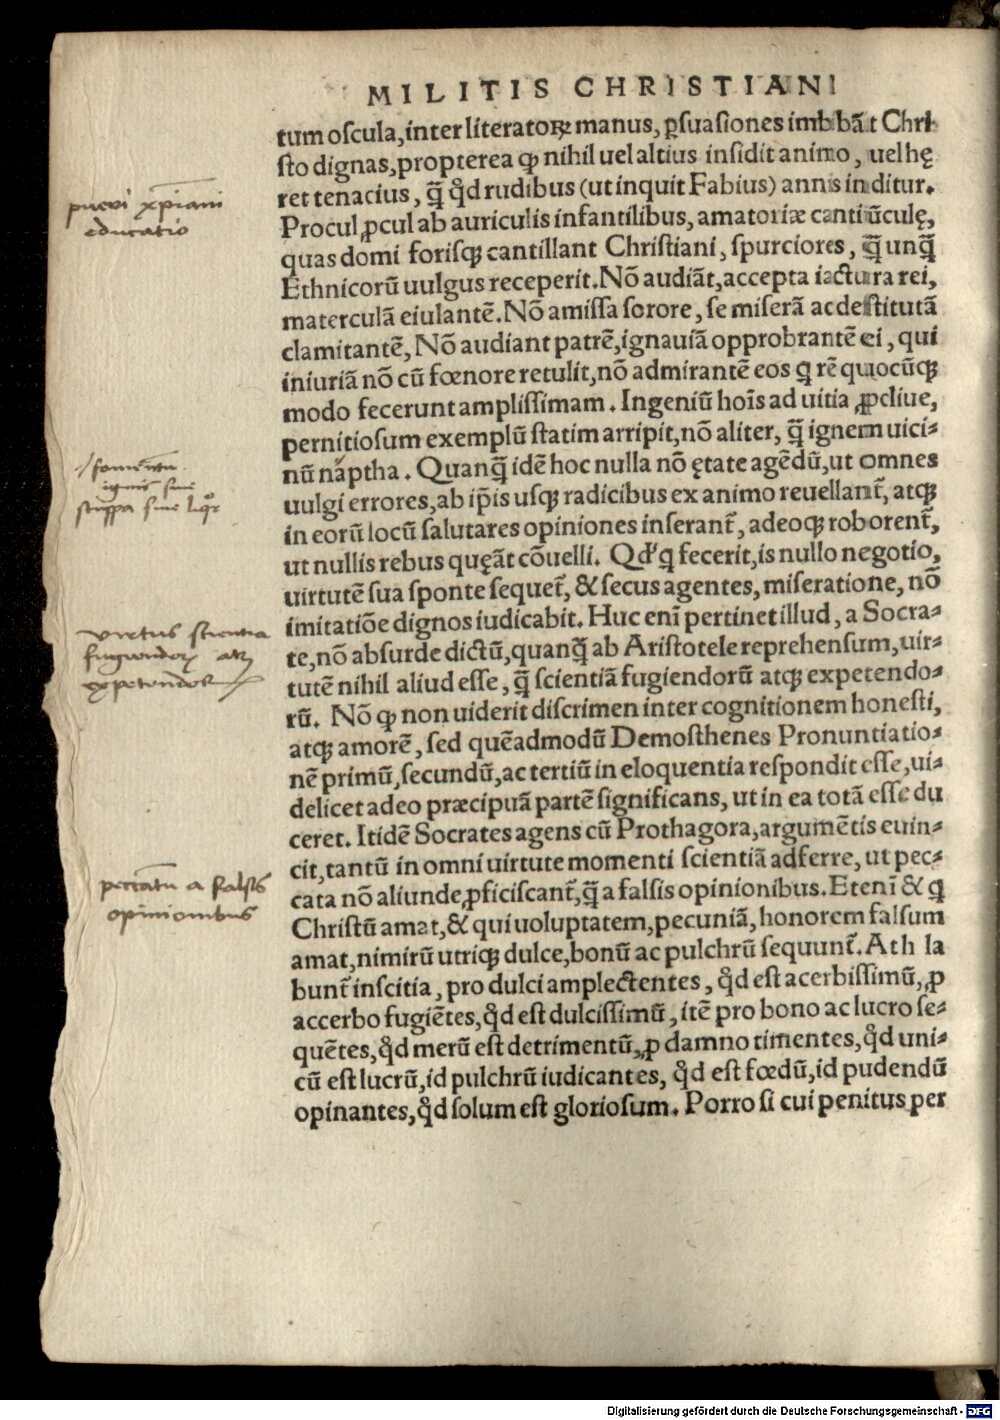 MILITIS CHRISTIANI
tum oſcula, inter literatoꝝ manus, ꝑſuaſiones imbibãt Chri-
ſto dignas, propterea ꝙ nihil uel altius inſidit animo, uel hę
ret tenacius, ꝗ̃ qͦd rudibus (ut inquit Fabius) annis inditur.
Procul ꝓcul ab auriculis infantilibus, amatoriæ cantiũculę,
quas domi foriſqꝫ cantillant Chriſtiani, ſpurciores, ꝗ̃ unꝗ̃
Ethnicorũ uulgus receperit. Nõ audiãt, accepta iactura rei,
materculã eiulantẽ. Nõ amiſſa ſorore, ſe miſerã ac deſtitutã
clamitantẽ, Nõ audiant patrẽ, ignauiã opprobrantẽ ei, qui
iniuriã nõ cũ fœnore retulit, nõ admirantẽ eos ꝗ rẽ quocũqꝫ
modo fecerunt ampliſſimam. Ingeniũ hoĩs ad uitia ꝓcliue,
pernitioſum exemplũ ſtatim arripit, nõ aliter, ꝗ̃ ignem uici-
nũ naptha. Quanꝗ̃ idẽ hoc nulla nõ ętate agẽdũ, ut omnes
uulgi errores, ab ip̃is uſqꝫ radicibus ex animo reuellant̃, atqꝫ
in eorũ locũ ſalutares opiniones inſerant̃, adeoqꝫ roborent̃,
ut nullis rebus quęãt cõuelli. Qd' ꝗ fecerit, is nullo negotio,
uirtutẽ ſua ſponte ſequet̃, & ſecus agentes, miſeratione, nõ
imitatiõe dignos iudicabit. Huc enĩ pertinet illud, a Socra-
te, nõ abſurde dictũ, quanꝗ̃ ab Ariſtotele reprehenſum, uir-
tutẽ nihil aliud eſſe, ꝗ̃ ſcientiã fugiendorũ atqꝫ expetendo-
rũ. Nõ ꝙ non uiderit diſcrimen inter cognitionem honeſti,
atqꝫ amorẽ, ſed quẽadmodũ Demoſthenes Pronuntiatio-
nẽ primũ, ſecundũ, ac tertiũ in eloquentia reſpondit eſſe, ui-
delicet adeo præcipuã partẽ ſignificans, ut in ea totã eſſe du
ceret. Itidẽ Socrates agens cũ Prothagora, argumẽtis euin-
cit, tantũ in omni uirtute momenti ſcientiã adferre, ut pec-
cata nõ aliunde ꝓficiſcant̃, ꝗ̃ a falſis opinionibus. Etenĩ & ꝗ
Chriſtũ amat, & qui uoluptatem, pecuniã, honorem falſum
amat, nimirũ utriqꝫ dulce, bonũ ac pulchrũ ſequunt̃. At h la
bunt̃ inſcitia, pro dulci amplectentes, qͦd eſt acerbiſſimũ, ꝓ
accerbo fugiẽtes, qͦd eſt dulciſſimũ, itẽ pro bono ac lucro ſe-
quẽtes, qͦd merũ eſt detrimentũ, ꝓ damno timentes, qͦd uni-
cũ eſt lucrũ, id pulchrũ iudicantes, qͦd eſt fœdũ, id pudendũ
opinantes, qͦd ſolum eſt glorioſum. Porro ſi cui penitus per
pueri xp̃iani
educatio
fomentũ
ignis ſiue
ſtuppa ſiue
virtus ſcientia
fugiendoꝝ atqꝫ
expetendoꝝ
peccatũ a falſis
opinionibus
Digitalisierung gefördert durch die Deutsche Forschungsgemeinschaft - DFG